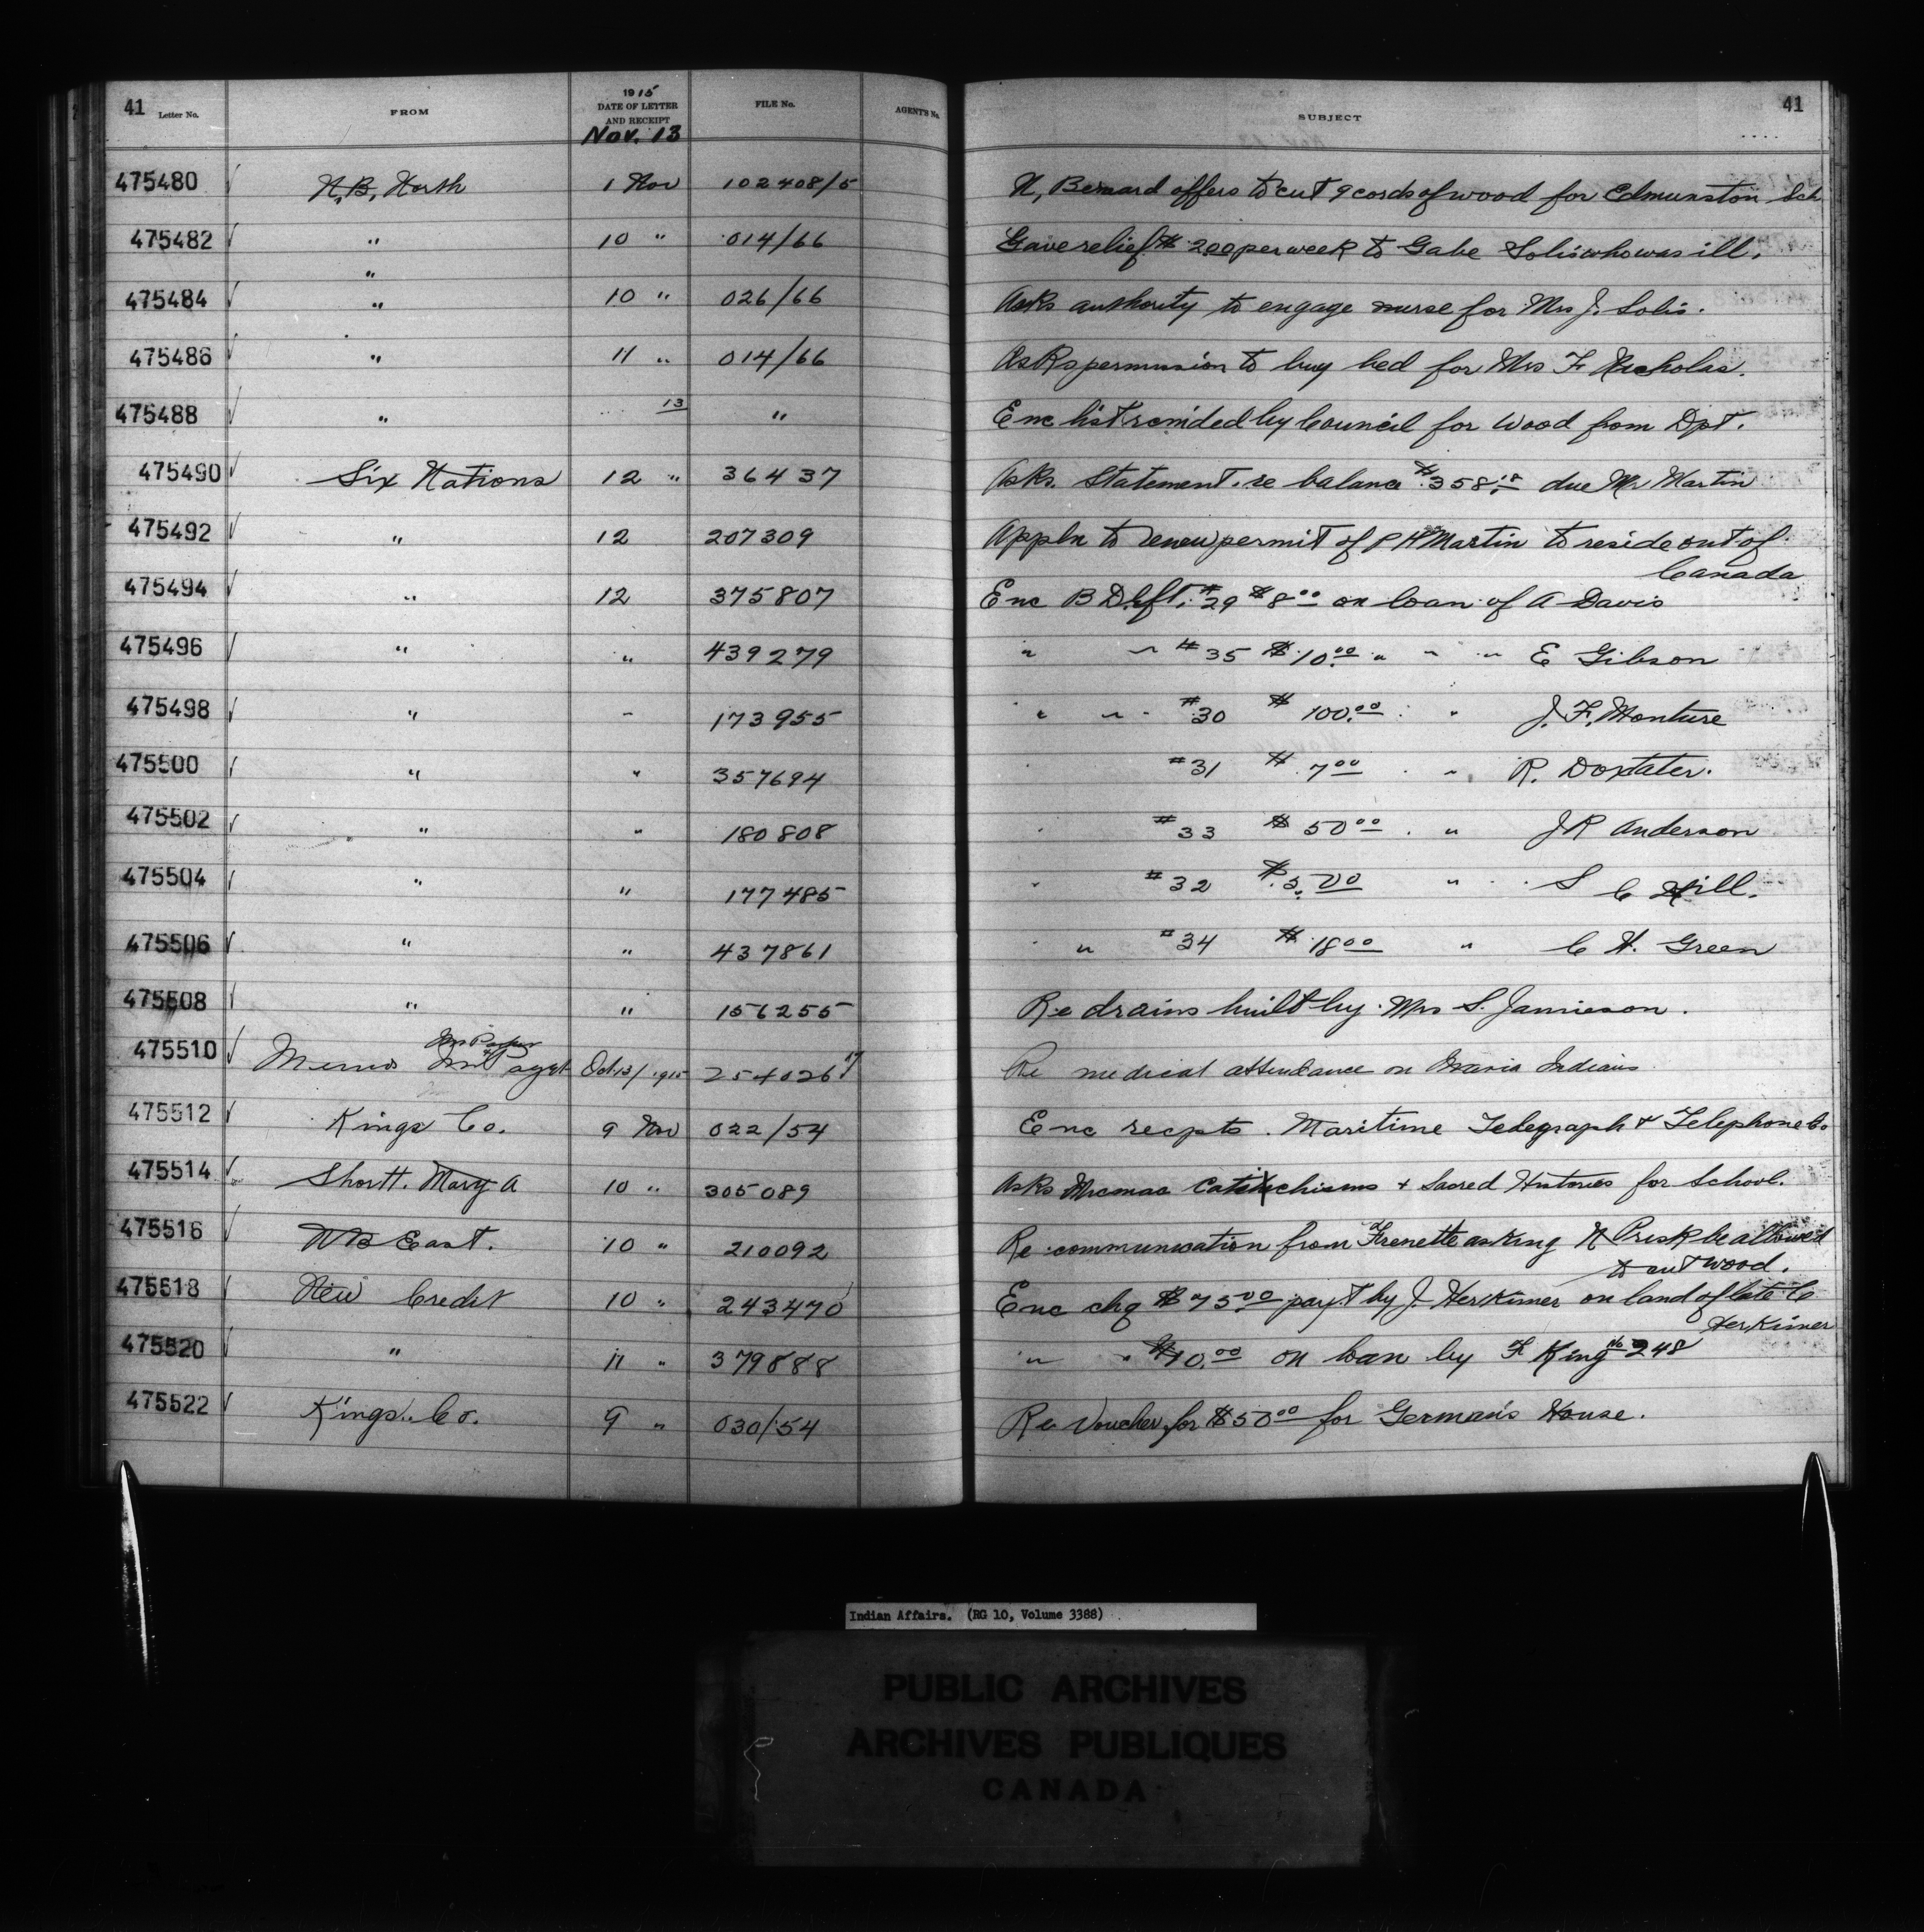 41 Letter No. FROM 1915 DATE OF LETTER AND RECEIPT Nov. 13 FILE No. AGENT'S No. SUBJECT 41
475480 N.B. North 1 Nov 102408/5 N, Bernard offers to cut 9 cords of wood for Edmunston Sch
475482 " 10 " 014/66 Gave relief $ 2.00 per week to Gabe Solis who was ill.
"
475484 " 10 " 026/66 Asks authority to engage nurse for Mrs J. Solis.
475486 " 11 " 014/66 Asks permission to buy bed for Mrs F Nicholas.
475488 " 13 " Enc list by Council for Wood from Dpt.
475490 Six Nations 12 " 36437 Asks. Statement. re balance $358.18 due Mr Martin
475492 " 12 207309 Appln to renew permit of P H Martin to reside out of
Canada
475494 " 12 375807 Enc B Dft. #29 $8 00 on loan of A Davis
475496 " " 439279 " " #35 $10.00 " " " E Gibson
475498 " " 173955 " " #30 $ 100.00 " J. F. Monture
475500 " " 357694 " #31 $ 7 00 " " R. Doxtater.
475502 " " 180808 " #33 $ 50 00 . " J R Anderson
475504 " " 177485 " #32 $ 5.00 " S C Hill.
475506 " " 437861 " " #34 $ 18 00 " C H. Green
475508 " " 156255 Re drains built by Mrs S. Jamieson.
475510 Memo agst Oct 13/1915 254026 17 Re medical attendance on Maria Indians
475512 Kings Co. 9 Nov 022/54 Enc recpts. Maritime Telegraph & Telephone Co
475514 Shortt. Mary A 10 " 305089 Asks Micmac Catechisms + Sacred Histories for School.
475516 N B East. 10 " 210092 Re communication from Frenette asking N Prisk be allowed
to cut wood.
475518 New Credit 10 " 243470 Enc chq $75.00 payt by J. Herkimer on land of late C
Herkimer
475520 " 11 " 379888 " " $10.00 on loan by F King No 248
475522 Kings. Co. 9 " 030/54 Re Voucher for $50 00 for German's House.
Indian Affairs. (RG 10, Volume 3388)
PUBLIC ARCHIVES
ARCHIVES PUBLIQUES
CANADA